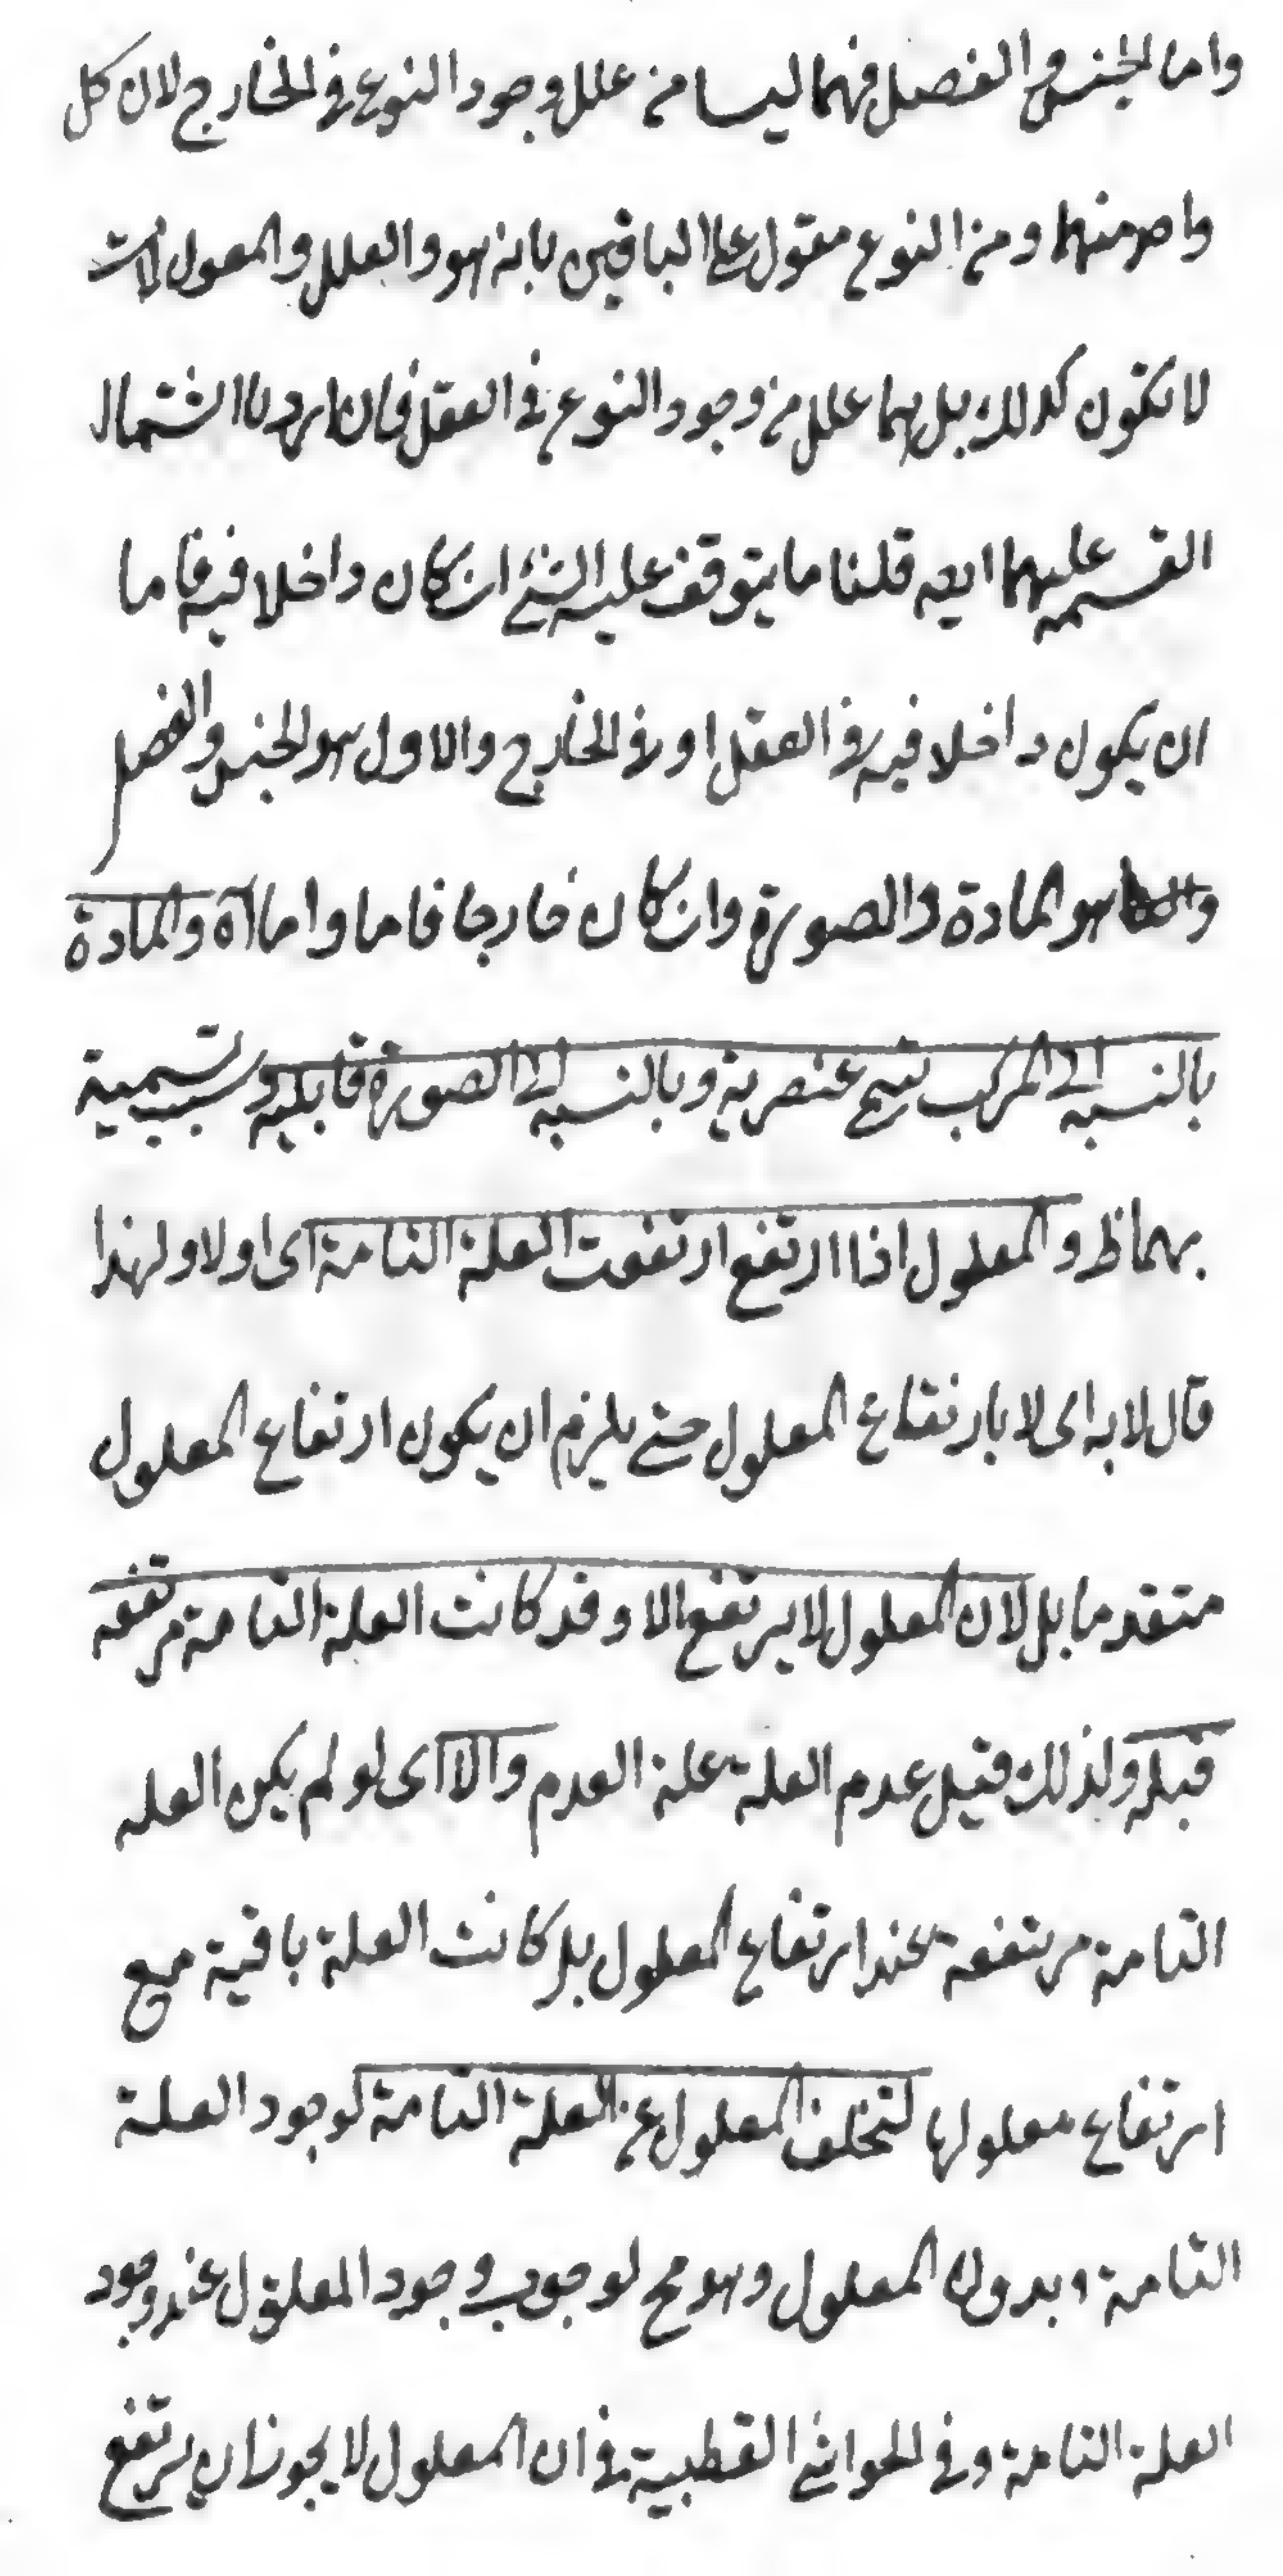 واما الجنس والفصل فهما ليسا من علل وجود النوع في الخارج لان كل
واحد منهما ومن النوع مقول على الباقين بانه هو والعلل والمعلولات
لا تكون كذلك بل هما علل من وجود النوع في العقل فان اردنا اشتمال
القسمه عليهما ايضه قلنا ما يتوقف عليه الشئ ان كان داخلا فيه فاما
ان يكون داخلا فيه في العقل او في الخارج والاول هو الجنس والفصل
هو المادة والصورة وان كان خارجا فاما واما آه والمادة
بالنسبه الى المركب تسمى عنصرية وبالنسبه الى الصورة قابليه وسبب تسمية
بهما ظ والمعلول اذا ارتفع ارتفعت العلة التامة اى اولا ولهذا
قال لا به اى لا بارتفاع المعلول حتى يلزم ان يكون ارتفاع المعلول
متقدما بل لان المعلول لا يرتفع الا وقد كانت العلة التامة مرتفعه
قبله ولذلك قيل عدم العلة علة العدم والا اى لو لم يكن العله
التامة مرتفعة عند ارتفاع المعلول بل كانت العلة باقية مع
ارتفاع معلولها لتخلف المعلول عن العلة التامة لوجود العلة
التامة وبدون المعلول وهو مح لوجوب وجود المعلول عند وجود
العلة التامة وفي الحواشى القطبية في ان المعلول لا يجوز ان يرتفع